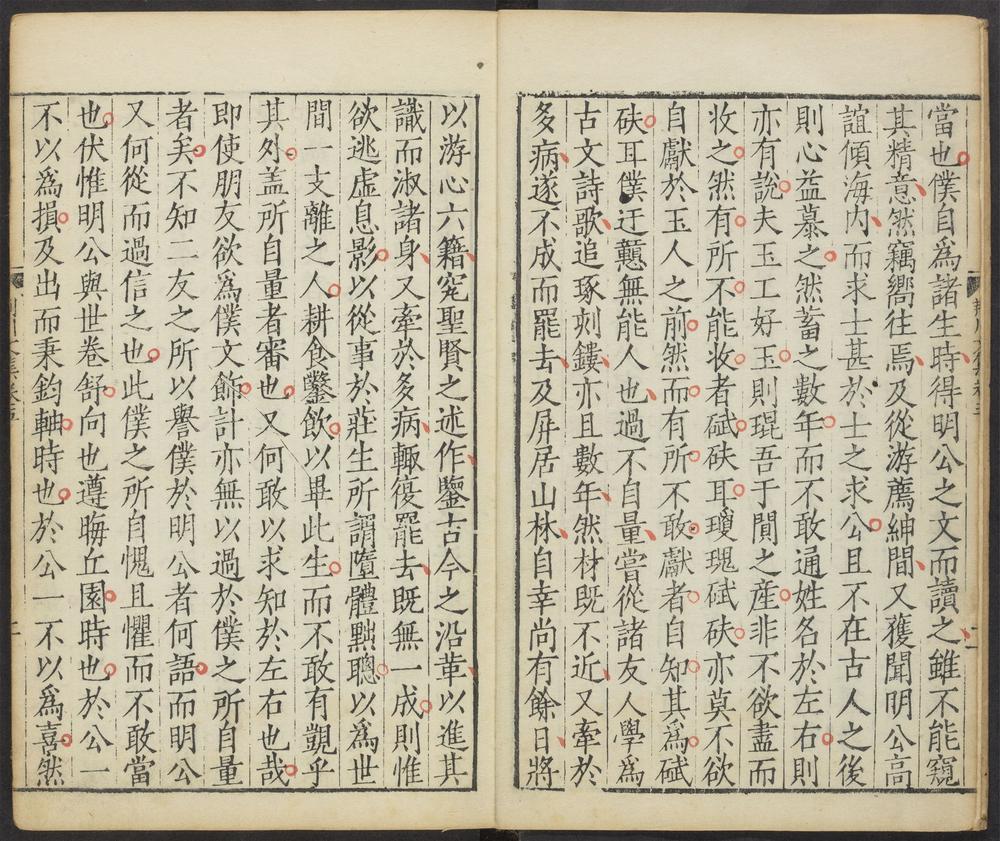 當也僕自爲諸生時得明公之文而讀之雖不能窺
其精意然竊嚮往焉及從游薦紳間又獲聞明公高
誼傾海內而求士甚於士之求公且不在古人之後
則心益慕之然蓄之數年而不敢通姓名於左右則
亦有說夫玉工好玉則琨吾于閴之産非不欲盡而
收之然有所不能收者碔砆耳瓊瑰碔砆亦莫不欲
自獻於玉人之前然而有所不敢獻者自知其爲碔
砆耳僕迂戇無能人也過不自量嘗從諸友人學爲
古文詩歌追琢刻鏤亦且數年然材既不近又牽於
多病遂不成而罷去及屏居山林自幸尚有餘日將
以游心六籍究聖賢之述作鑒古今之沿革以進其
識而淑諸身又牽於多病輙復罷去既無一成則惟
欲逃虛息影以從事於莊生所謂墮體黜聰以爲世
間一支離之人耕食鑿飲以畢此生而不敢有覬乎
其外盖所自量者審也又何敢以求知於左右也哉
即使朋友欲爲僕文飾計亦無以過於僕之所自量
者矣不知二友之所以譽僕於明公者何語而明公
又何從而過信之也此僕之所自愧且懼而不敢當
也伏惟明公與世卷舒向也遵晦丘園時也於公一
不以爲損及出而秉鈞軸時也於公一不以爲喜然